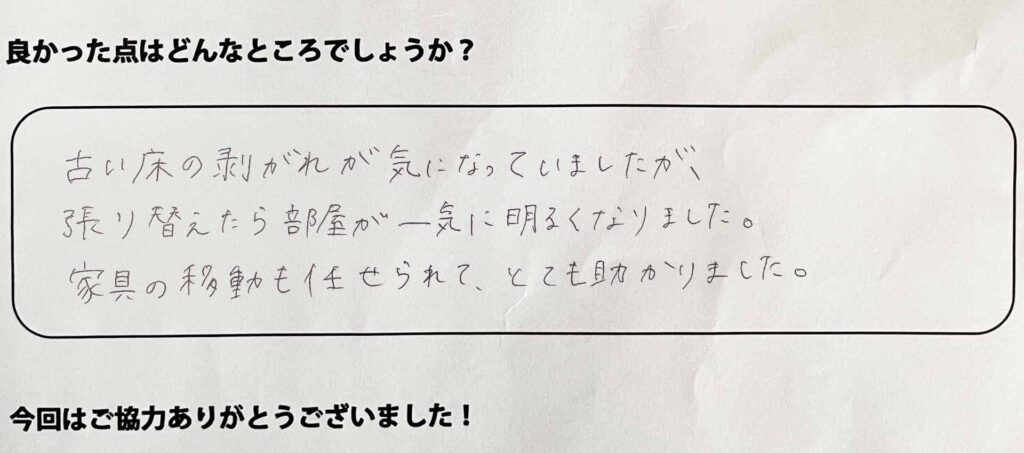 良かった点はどんなところでしょうか？
古い床の剥がれが気になっていましたが、
張り替えたら部屋が一気に明るくなりました。
家具の移動も任せられて、とても助かりました。
今回はご協力ありがとうございました！